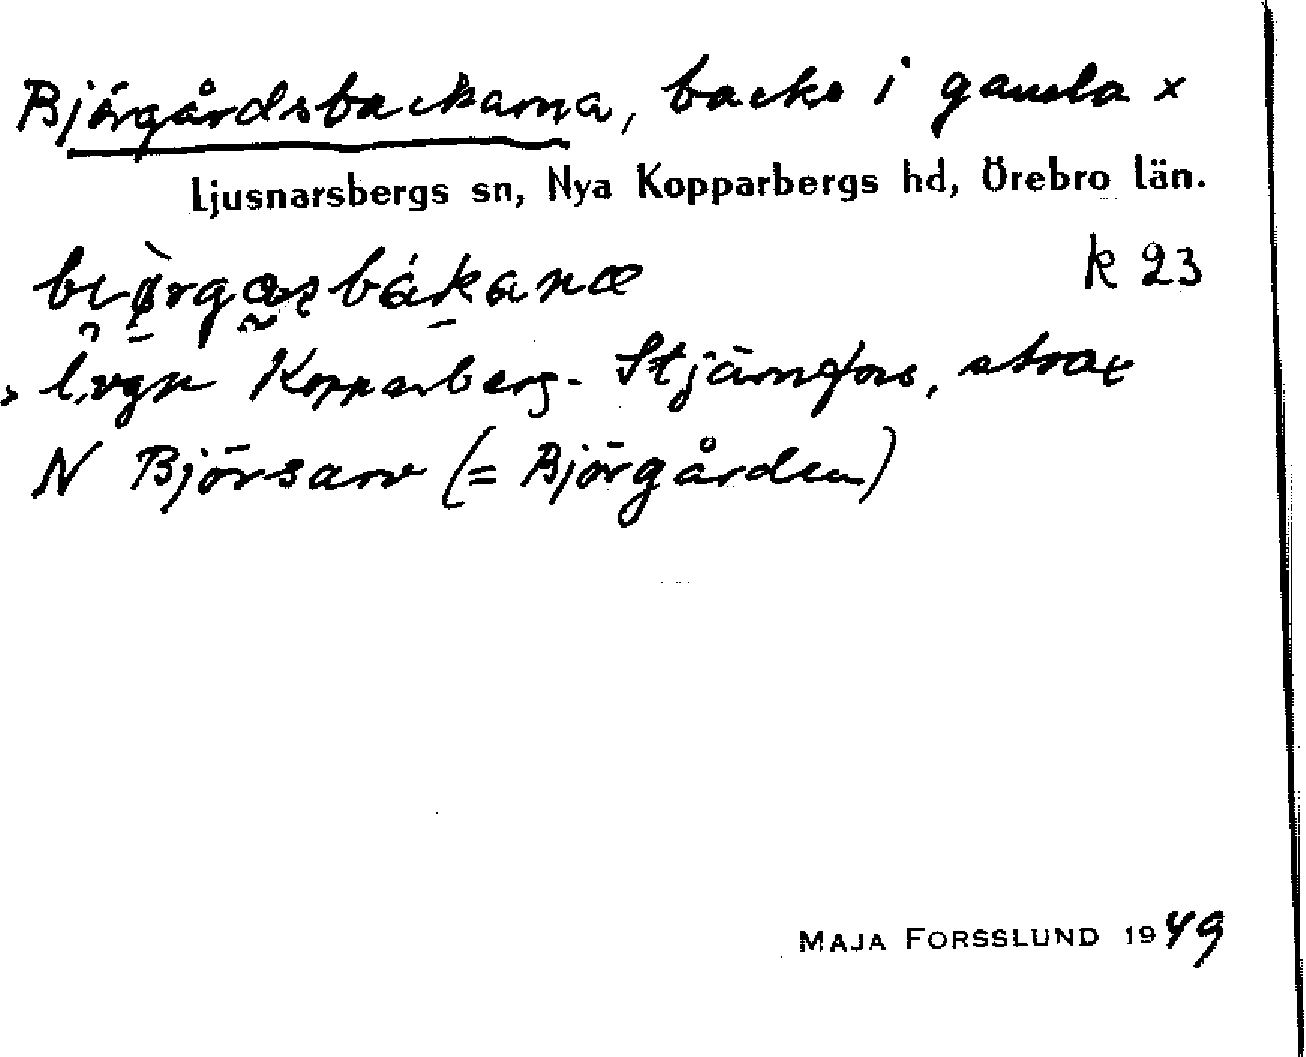 Björgårdsbackarna, backe i gamla x
Ljusnarsbergs sn, Nya Kopparbergs hd, Örebro län.
k 23
x lvgn Kopparberg - Stjärnfors, strax
N Björsarv (= Björgården)
MAJA FORSSLUND 1949